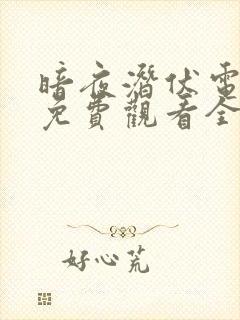 暗夜潛伏電
免費觀看全
好心荒